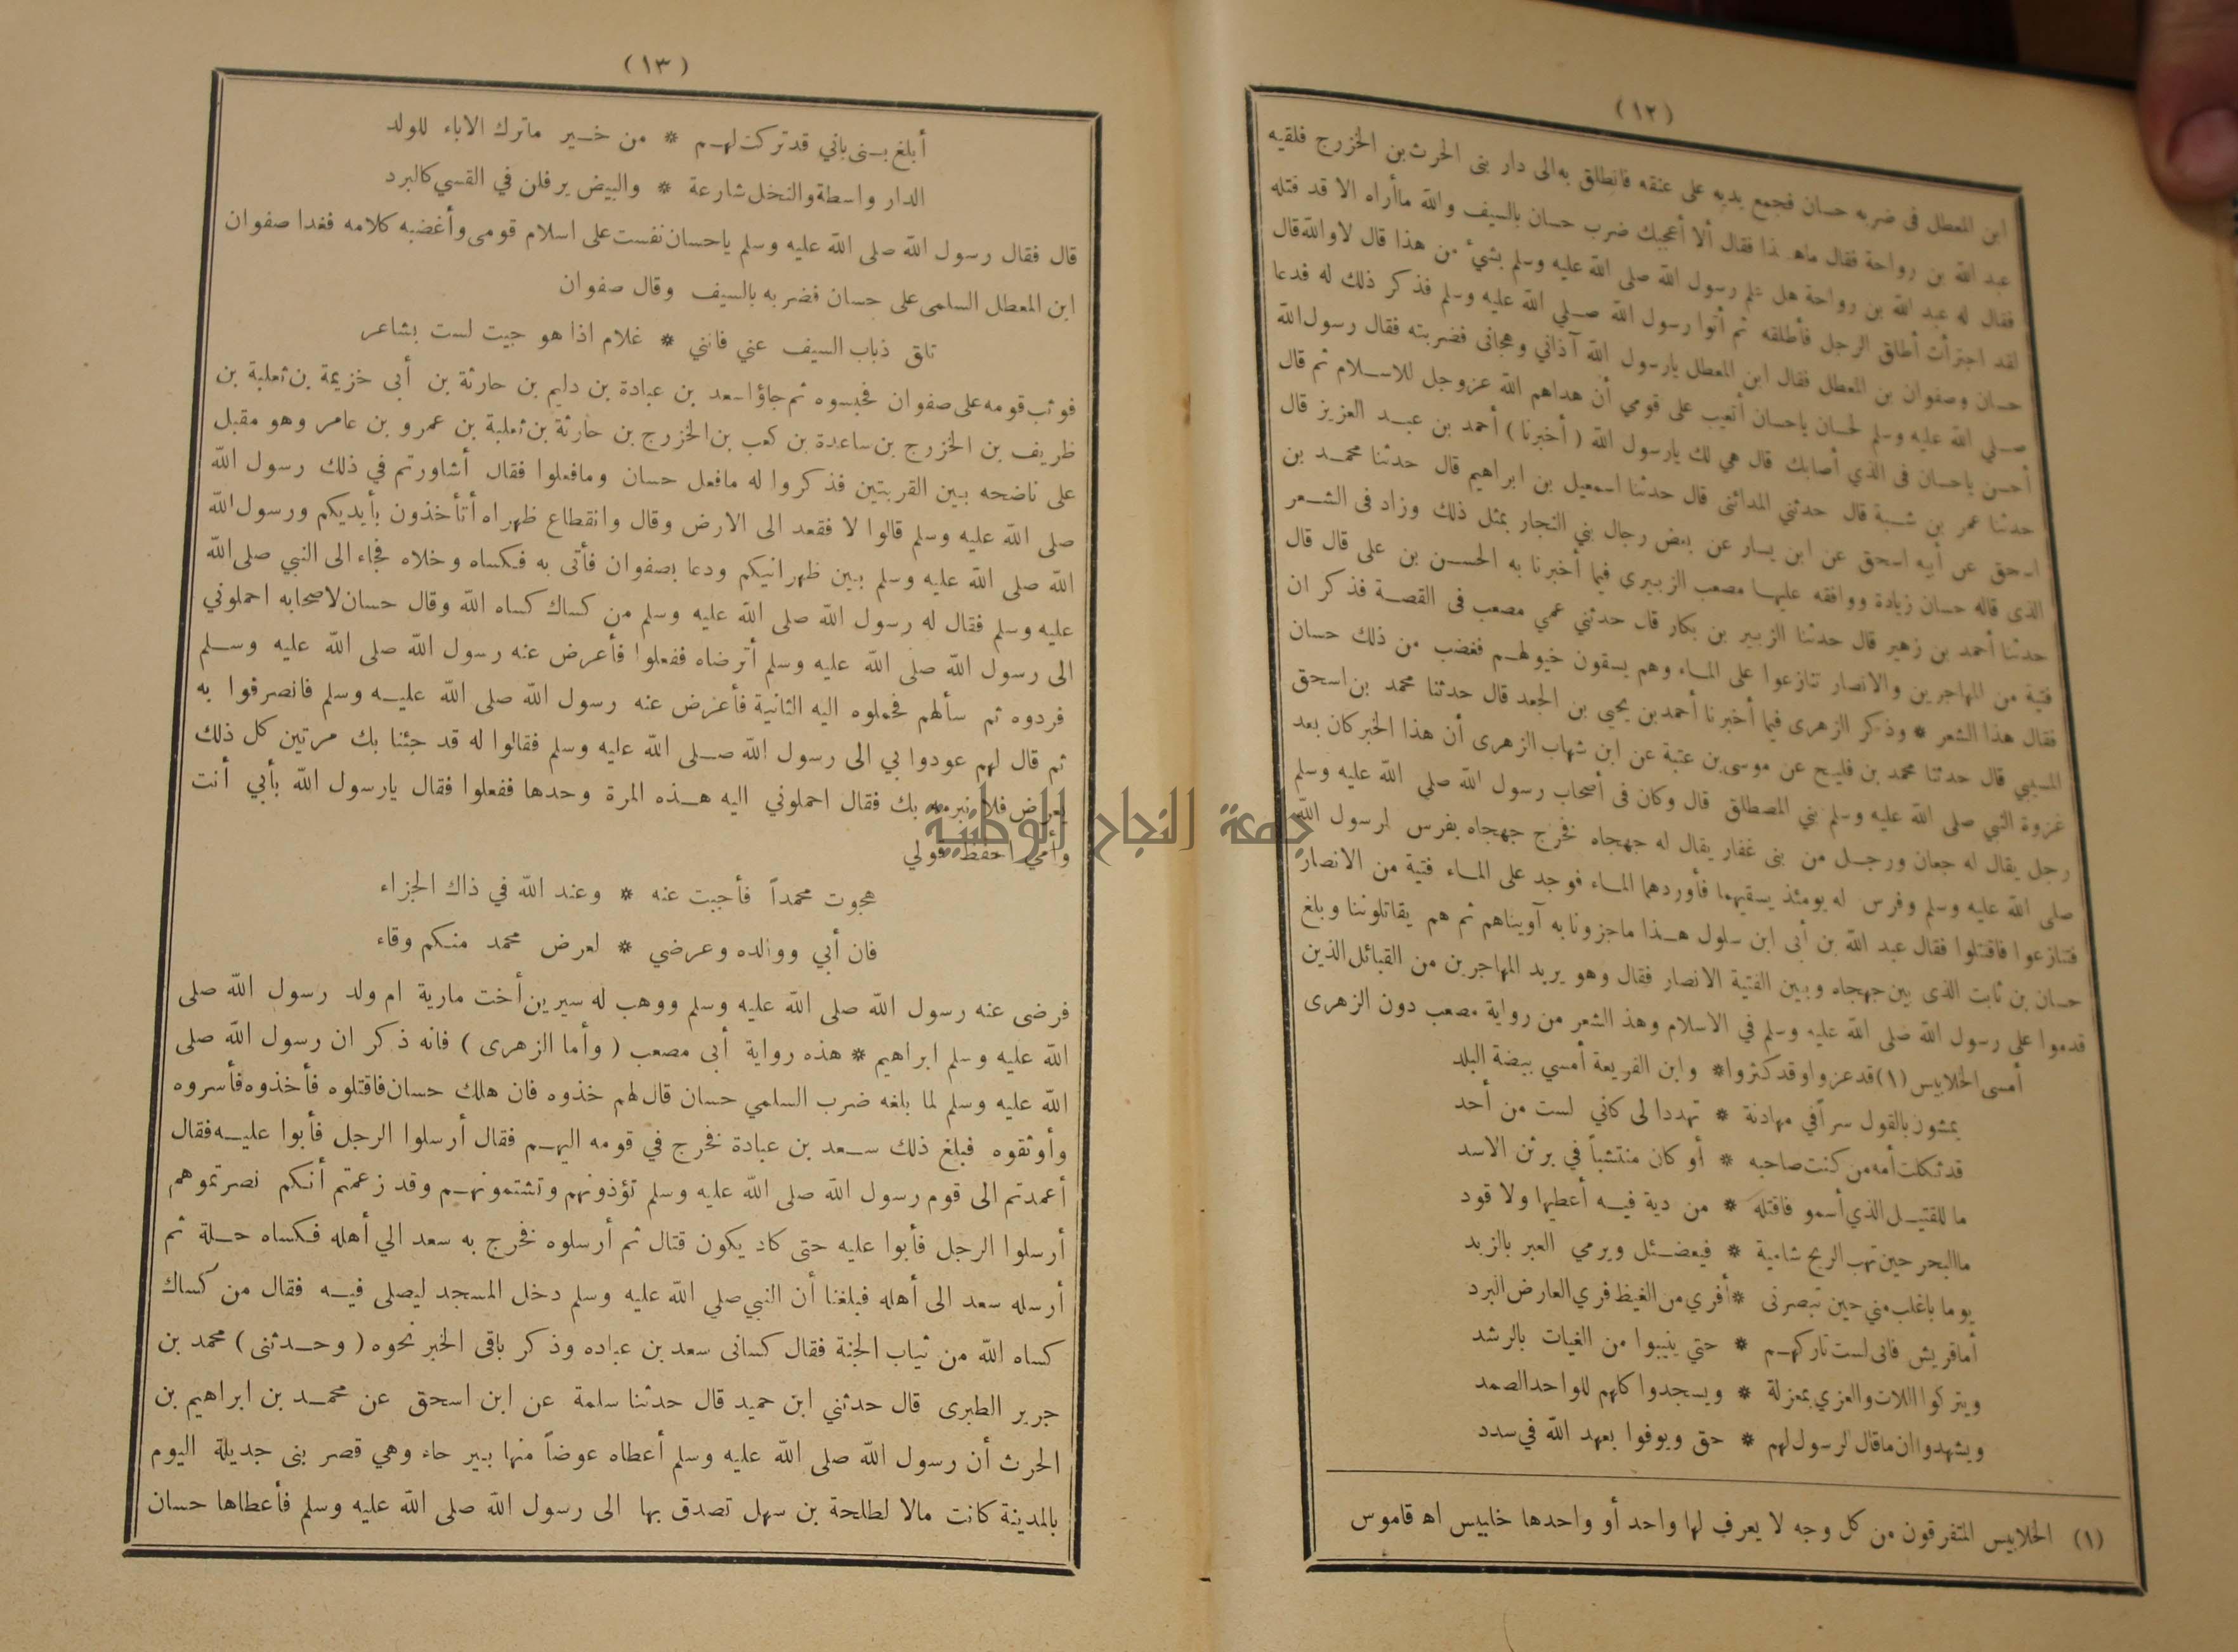 (١٢)
ابن المعطل فى ضربه حسان فجمع يديه على عنقه فانطلق به الى دار بنى الحرث بن الخزرج فلقيه
عبد الله بن رواحة فقال ماهذا فقال ألا أعجبك ضرب حسان بالسيف والله ماأراه الا قد قتله
فقال له عبد الله بن رواحة هل علم رسول الله صلى الله عليه وسلم بشيء من هذا قال لا والله قال
لقد اجترأت أطلق الرجل فأطلقه ثم أتوا رسول الله صلي الله عليه وسلم فذكر ذلك له فدعا
حسان وصفوان بن المعطل فقال ابن المعطل يارسول الله آذاني وهجانى فضربته فقال رسول الله
صلي الله عليه وسلم لحسان ياحسان أتعيب على قومي أن هداهم الله عزوجل للاسلام ثم قال
أحسن ياحسان فى الذي أصابك قال هي لك يارسول الله (أخبرنا) أحمد بن عبد العزيز قال
حدثنا عمر بن شبة قال حدثني المدائنى قال حدثنا اسمعيل بن ابراهيم قال حدثنا محمد بن
اسحق عن أبيه اسحق عن ابن يسار عن بعض رجال بني النجار بمثل ذلك وزاد فى الشعر
الذى قاله حسان زيادة ووافقه عليها مصعب الزبيرى فيما أخبرنا به الحسن بن على قال قال
حدثنا أحمد بن زهير قال حدثنا الزبير بن بكار قال حدثني عمي مصعب فى القصة فذكر ان
فتية من المهاجرين والانصار تنازعوا على الماء وهم يسقون خيولهم فغضب من ذلك حسان
فقال هذا الشعر * وذكر الزهرى فيما أخبرنا أحمد بن يحيى بن الجعد قال حدثنا محمد بن اسحق
المسيبي قال حدثنا محمد بن فليح عن موسى بن عتبة عن ابن شهاب الزهرى أن هذا الخبر كان بعد
غزوة النبي صلى الله عليه وسلم بني المصطلق قال وكان فى أصحاب رسول الله صلى الله عليه وسلم
رجل يقال له جعان ورجل من بنى غفار يقال له جهجاه فخرج جهجاه بفرس لرسول الله
صلى الله عليه وسلم وفرس له يومئذ يسقيهما فأوردهما الماء فوجد على الماء فتية من الانصار
فتنازعوا فاقتتلوا فقال عبد الله بن أبى ابن سلول هذا ماجزونا به آويناهم ثم هم يقاتلوننا وبلغ
حسان بن ثابت الذى بين جهجاه وبين الفتية الانصار فقال وهو يريد المهاجرين من القبائل الذين
قدموا على رسول الله صلى الله عليه وسلم في الاسلام وهذ الشعر من رواية مصعب دون الزهرى
أمسى الخلابيس (١) قدعزوا وقدكثروا * وابن الفريعة أمسي بيضة البلد
يمشون بالقول سراً في مهادنة * تهددا لى كاني لست من أحد
قدثكلت أمه من كنت صاحبه * أو كان منتشباً في برثن الاسد
ما للقتيل الذي أسمو فاقتله * من دية فيه أعطيها ولا قود
ماالبحر حين تهب الريح شامية * فيعضئل ويرمي العبر بالزبد
يوما باغلب مني حين تبصرنى * أفري من الغيظ فري العارض البرد
أما قريش فانى لست تاركهم * حتي ينيبوا من الغيات بالرشد
ويتركوا اللات والعزي بمعزلة * ويسجدوا كلهم للواحد الصمد
ويشهدوا ان ماقال الرسول لهم * حق ويوفوا بعهد الله في سدد
(١) الخلابيس المتفرقون من كل وجه لا يعرف لها واحد أو واحدها خلبيس اه قاموس
(١٣)
أبلغ بنى باني قدتركت لهم * من خير ماترك الاباء للولد
الدار واسطة والنخل شارعة * والبيض يرفلن في القسي كالبرد
قال فقال رسول الله صلى الله عليه وسلم ياحسان نفست على اسلام قومى وأغضبه كلامه فغدا صفوان
ابن المعطل السلمى على حسان فضربه بالسيف وقال صفوان
تلق ذباب السيف عني فانني * غلام اذا هو جيت لست بشاعر
فوثب قومه على صفوان فحبسوه ثم جاؤا سعد بن عبادة بن دليم بن حارثة بن أبى خزيمة بن ثعلبة بن
ظريف بن الخزرج بن ساعدة بن كعب بن الخزرج بن حارثة بن ثعلبة بن عمرو بن عامر وهو مقبل
على ناضحه بين القربتين فذكروا له مافعل حسان ومافعلوا فقال أشاورتم في ذلك رسول الله
صلى الله عليه وسلم قالوا لا فقعد الى الارض وقال وانقطاع ظهراه أتأخذون بأيديكم ورسول الله
الله صلى الله عليه وسلم بين ظهرانيكم ودعا بصفوان فأتى به فكساه وخلاه فجاء الى النبي صلى الله
عليه وسلم فقال له رسول الله صلى الله عليه وسلم من كساك كساه الله وقال حسان لاصحابه احملوني
الى رسول الله صلى الله عليه وسلم أترضاه ففعلوا فأعرض عنه رسول الله صلى الله عليه وسلم
فردوه ثم سألهم فحملوه اليه الثانية فأعرض عنه رسول الله صلى الله عليه وسلم فانصرفوا به
ثم قال لهم عودوا بي الى رسول الله صلى الله عليه وسلم فقالوا له قد جئنا بك مرتين كل ذلك
يعرض فلا نبرمه بك فقال احملوني اليه هذه المرة وحدها ففعلوا فقال يارسول الله بأبي أنت
وأمي احفظ قولي
جامعة النجاح الوطنية
هجوت محمداً فأجبت عنه * وعند الله في ذاك الجزاء
فان أبي ووالده وعرضي * لعرض محمد منكم وقاء
فرضى عنه رسول الله صلى الله عليه وسلم ووهب له سيرين أخت مارية ام ولد رسول الله صلى
الله عليه وسلم ابراهيم * هذه رواية أبى مصعب (وأما الزهرى) فانه ذكر ان رسول الله صلى
الله عليه وسلم لما بلغه ضرب السلمي حسان قال لهم خذوه فان هلك حسان فاقتلوه فأخذوه فأسروه
وأوثقوه فبلغ ذلك سعد بن عبادة فخرج في قومه اليهم فقال أرسلوا الرجل فأبوا عليه فقال
أعمدتم الى قوم رسول الله صلى الله عليه وسلم تؤذونهم وتشتمونهم وقد زعمتم أنكم نصرتموهم
أرسلوا الرجل فأبوا عليه حتى كاد يكون قتال ثم أرسلوه فخرج به سعد الي أهله فكساه حلة ثم
أرسله سعد الى أهله فبلغنا أن النبي صلي الله عليه وسلم دخل المسجد ليصلى فيه فقال من كساك
كساه الله من ثياب الجنة فقال كسانى سعد بن عباده وذكر باقى الخبر نحوه (وحدثنى) محمد بن
جرير الطبرى قال حدثني ابن حميد قال حدثنا سلمة عن ابن اسحق عن محمد بن ابراهيم بن
الحرث أن رسول الله صلى الله عليه وسلم أعطاه عوضاً منها بير حاء وهي قصر بنى جديلة اليوم
بالمدينة كانت مالا لطلحة بن سهل تصدق بها الى رسول الله صلى الله عليه وسلم فأعطاها حسان